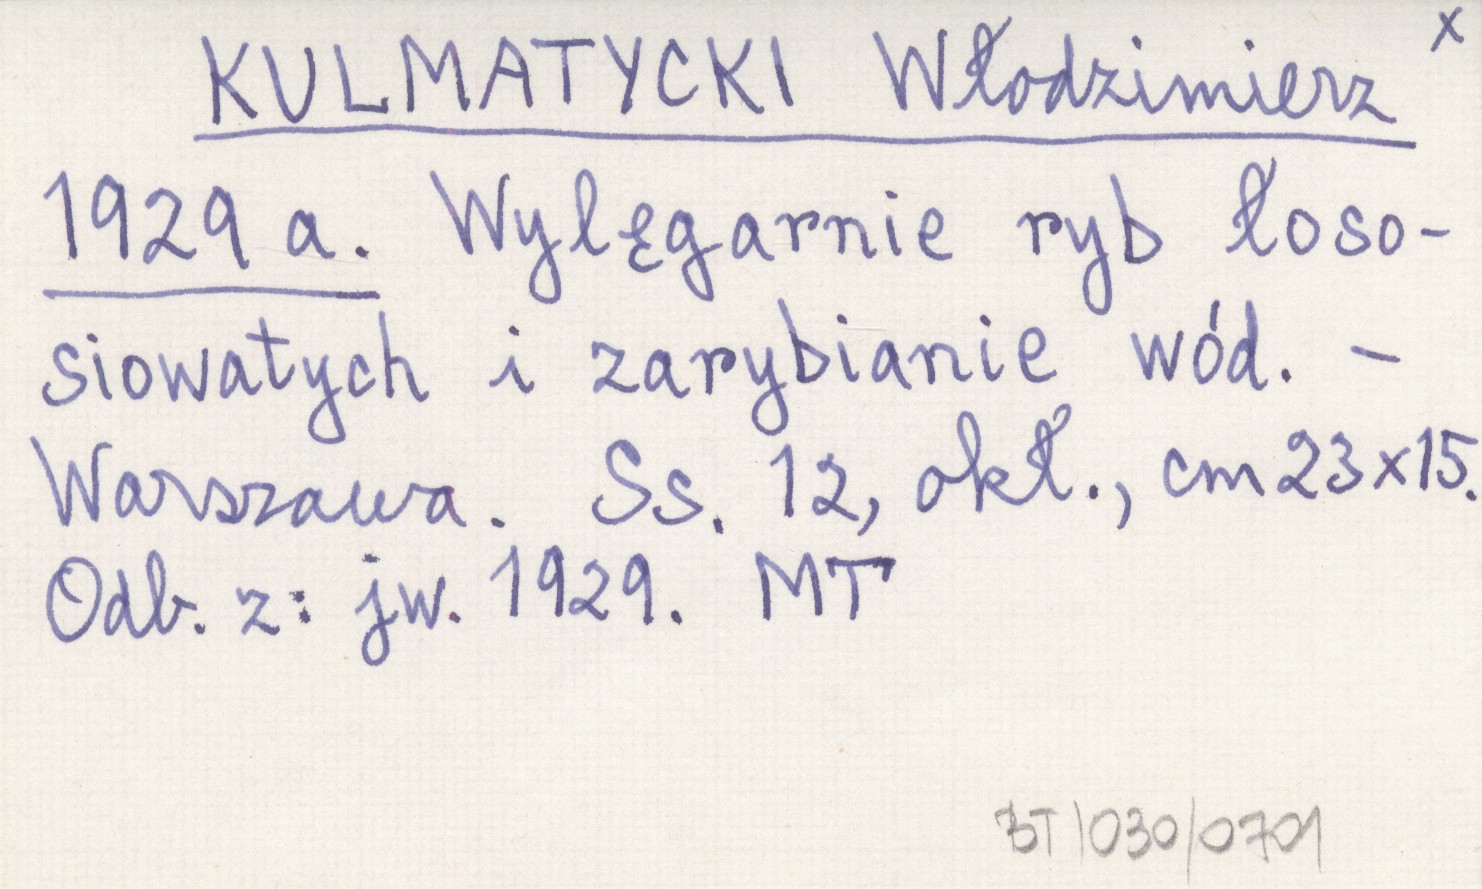 KULMATYCKI Włodzimierz x
1929 a. Wylęgarnie ryb łoso-
siowatych i zarybianie wód. -
Warszawa. Ss. 12, okł., cm 23x15.
Odb. z: jw. 1929. MT
BT/030/0701